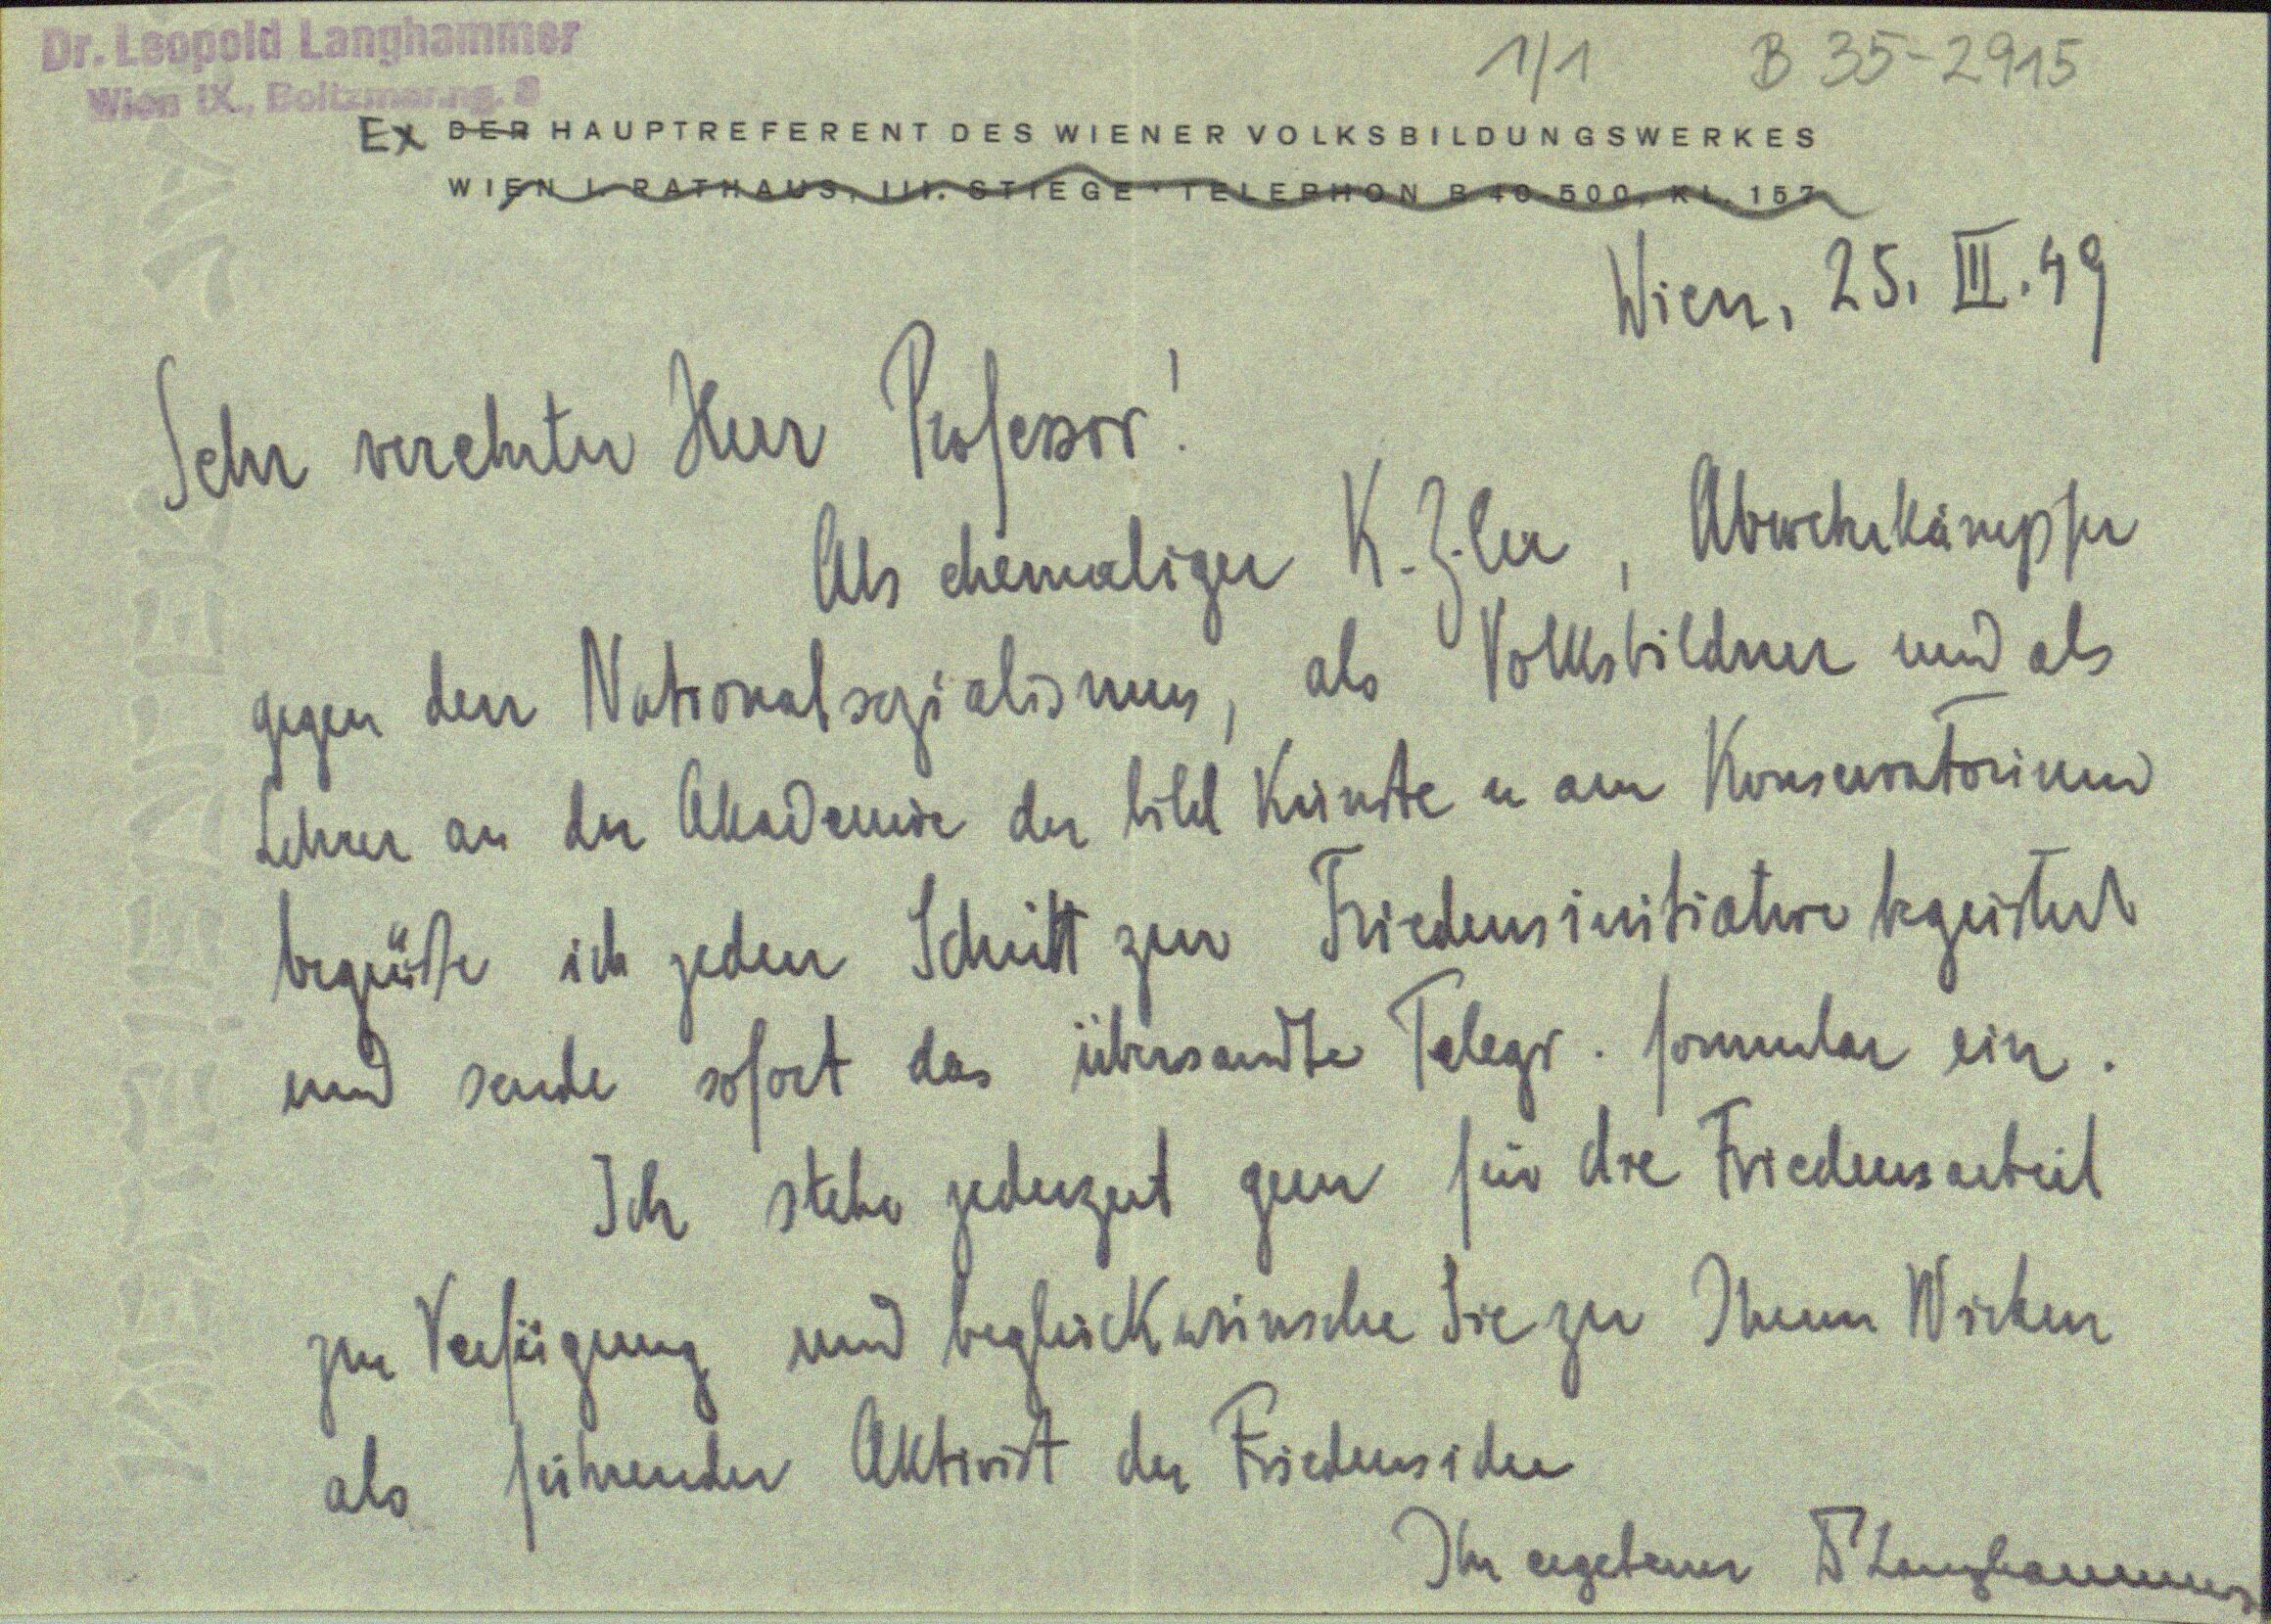 Dr. Leopold Langhammer
Wien IX., Boltzmanng. 8
1/1 B 35-2915
Ex DER HAUPTREFERENT DES WIENER VOLKSBILDUNGSWERKES
WIEN I. RATHAUS, III. STIEGE · TELEPHON B 40-500, KL. 157
Wien, 25. III. 49
Sehr verehrter Herr Professor!
Als ehemaliger K.Z.ler, Abwehrkämpfer
gegen den Nationalsozialismus, als Volksbildner und als
Lehrer an der Akademie der bild Künste u am Konservatorium
begrüße ich jeden Schritt zur Friedensinitiative begeistert
und sende sofort das übersandte Telegr. formular ein.
Ich stehe jederzeit gern für die Friedensarbeit
zur Verfügung und beglückwünsche Sie zu Ihrem Wirken
als führender Aktivist der Friedensidee
Ihr ergebener Dr Langhammer